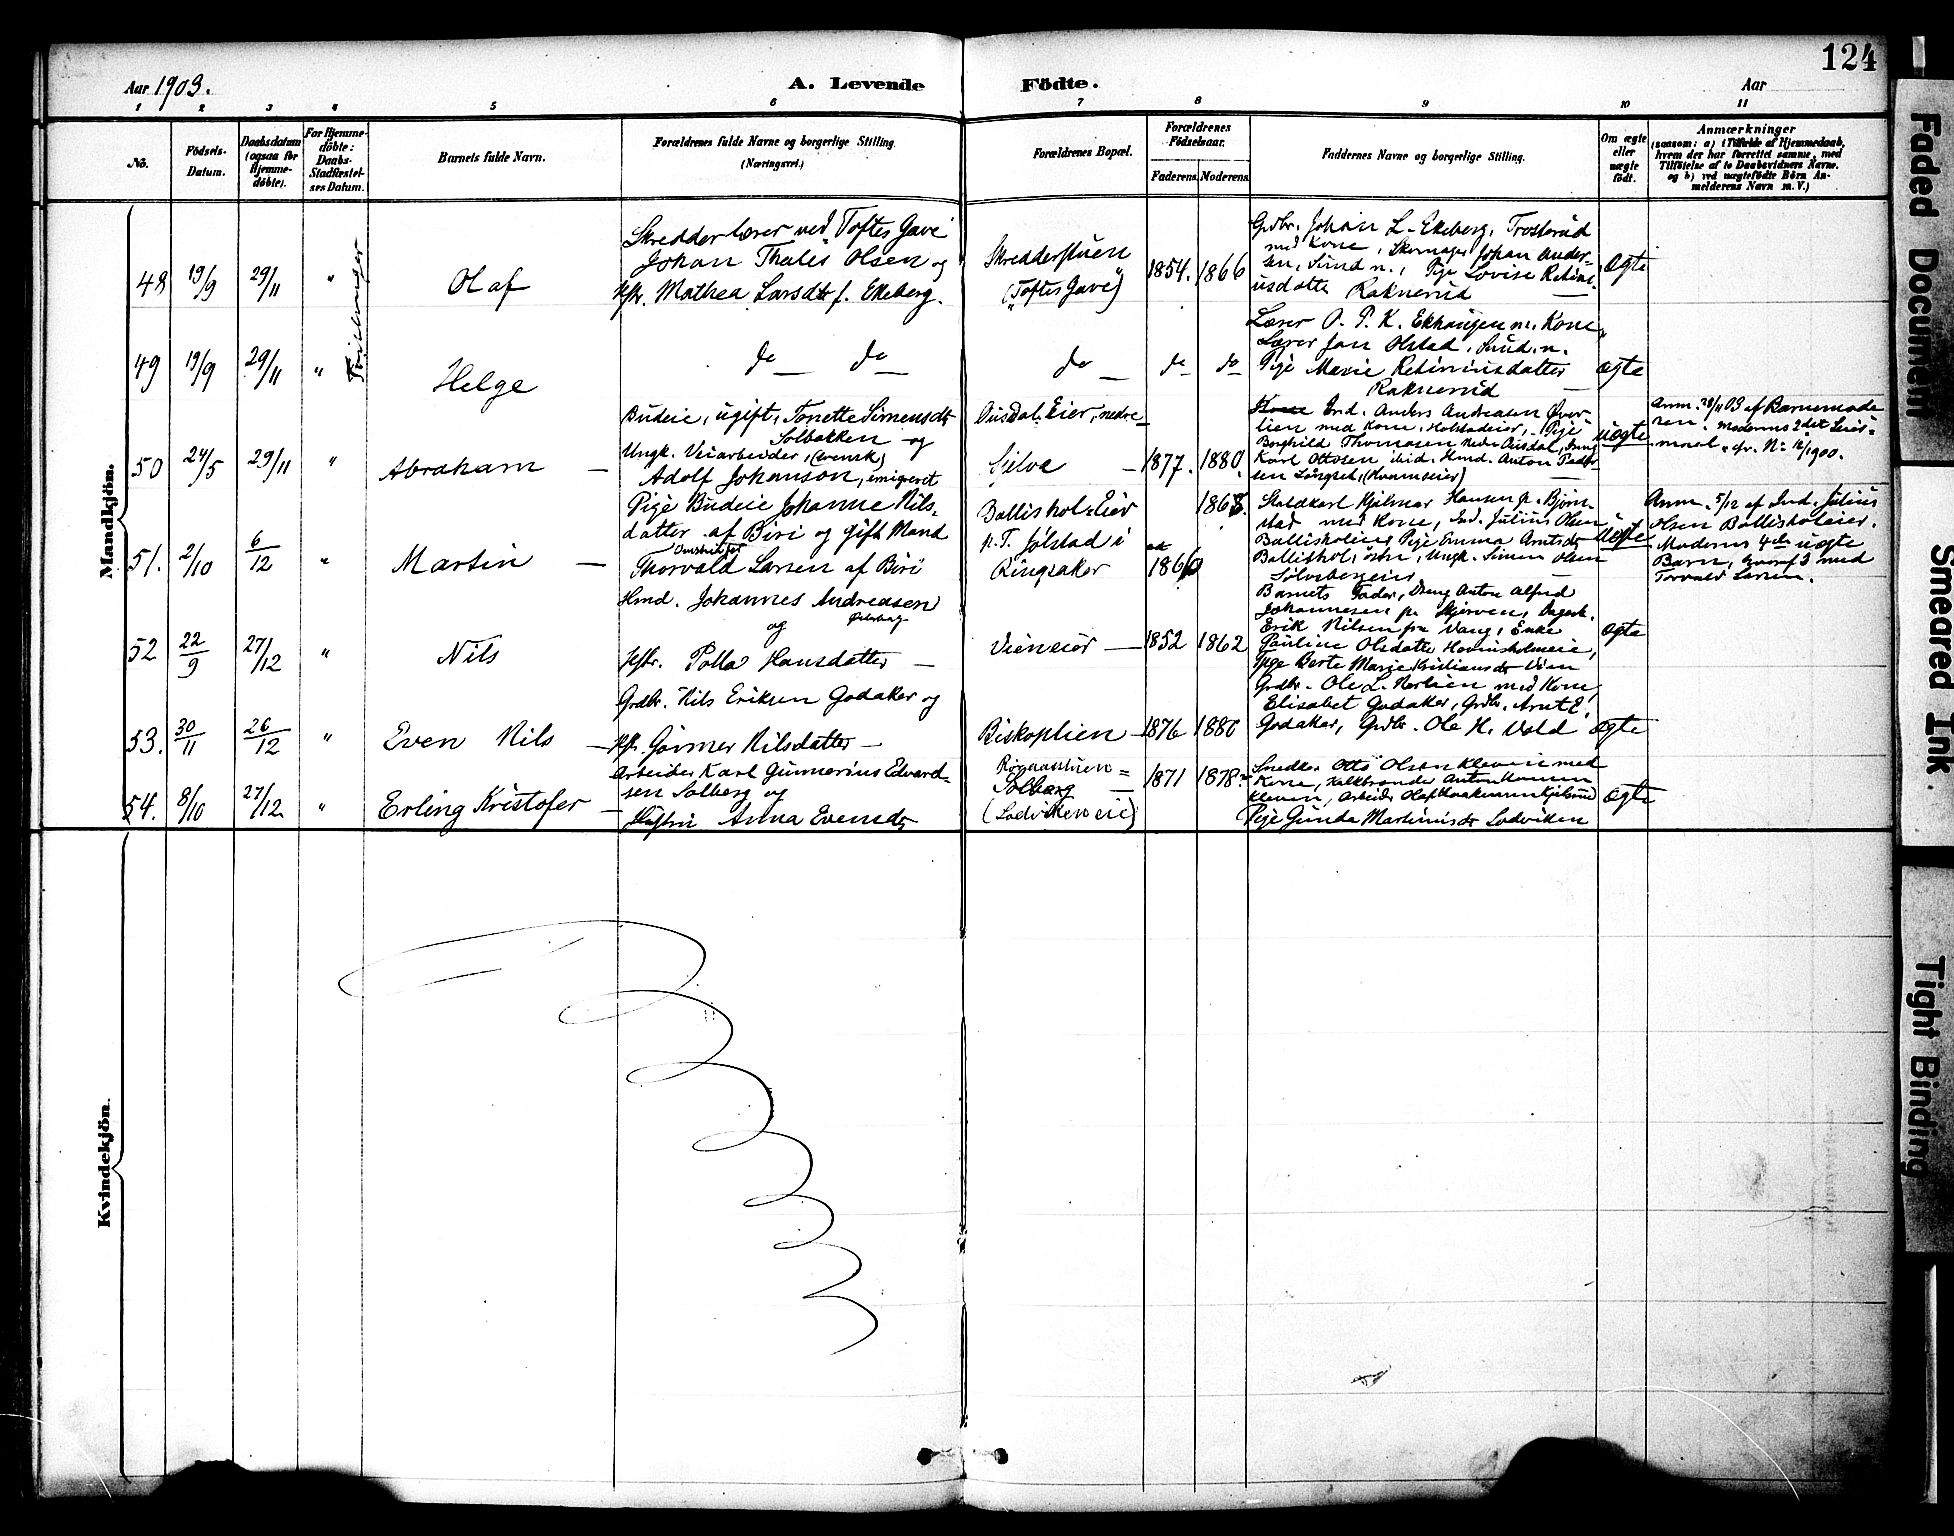 124
Aar 1903.
A. Levende Födte.
Aar
1 2 3 4 5 6 7 8 9 10 11
No.
Födsels-Datum.
Daabsdatum (ogsaa for Hjemmedöbte).
For Hjemmedöbte: Daabs-Stadfæstelses Datum.
Barnets fulde Navn.
Forældrenes fulde Navne og borgerlige Stilling.
(Næringsvei.)
Forældrenes Bopæl.
Forældrenes Födselsaar.
Faderens. Moderens.
Faddernes Navne og borgerlige Stilling.
Om ægte eller uægte födt.
Anmærkninger
(saasom: a) i Tilfælde af Hjemmedaab, hvem der har forrettet samme, med Tilföielse af to Daabsvidners Navne, og b) ved uægtefödte Börn Anmelderens Navn m. V.)
Mandkjön.
48 19/9 29/11 " Olaf
Skredderlærer ved Toftes Gave
Johan Thales Olsen og
Hstr. Mathea Larsdtr f. Ekeberg.
Skredderstuen
("Toftes Gave")
1854. 1866
Grdbr. Johan L. Ekeberg, Trosterud
med Kone, Skomager Johan Ander-
sen, Sund n., Pige Lovise Retini-
usdatter Raknerud
ægte
49 19/9 29/11 " Helge
do do
do
do do
Lærer O. P. K. Ekhaugen m. Kone,
Lærer Jon Olstad, Sund n.
Pige Marie Retiniusdatter
Raknerud
ægte
50 24/5 29/11 " Abraham
Budeie, ugift, Tonette Simensdtr
Solbakken og
Ungk. Veiarbeider, (svensk)
Adolf Johanson, emigreret
Ausdal Eier, nedre
Gjelve
1877. 1880.
Ind. Anders Andreasen Over-
lien med Kone, Holstadeier, Pige
Borghild Thomasen Nedre Ausdal, Ungk.
Karl Ottosen ibid. Hmd. Anton
uægte
Anm. 28/11 03 af Barnemode
ren. Moderens 2det Leier-
maal, cfr. N: 12/1900.
51. 2/10 6/12 " Martin
Pige Budeie Johanne Nils-
datter af Biri og gift Mand
Thorvald Larsen af Biri
Ballishol Eier
p. T. Jølstad i
Ringsaker
1866 1868.
Staldkarl Hjalmar Hansen p. Bjørn-
stad med Kone, Ind. Julius Olsen
Ballisholeie, Pige Emma Arntsdtr
Ballishol, østre, Ungk. Simen Olsen
Sølvsbergeier
uægte
Anm. 5/12 af Ind. Julius
Olsen Ballisholeier.
Moderens 4de uægte
Barn, hvoraf 3 med
Torvald Larsen.
52 22/9 27/12 " Nils
Hmd. Johannes Andreasen
og
Hstr. Polla Hansdatter
Vieneier
1852 1862
Barnets Fader, Dreng Anton Alfred
Johannesen
Erik Nilsen fra Vang, Enke
Pauline Olsdatter Hovinsholmeie,
Pige Berte Marie Kristiansdtr Vien
ægte
53. 30/11 26/12 " Even Nils
Grdbr. Nils Eriksen Godaker og
Hstr. Gørmer Nilsdatter
Biskoplien
1876 1880
Grdbr. Ole L. Nerlien med Kone,
Elisabet Godaker, Grdbr. Arnt E.
Godaker, Grdbr. Ole H. Vold
ægte
54. 8/10 27/12 " Erling Kristofer
Arbeider Karl Gunnerius Edvard-
sen Solberg og
Hustru Anna Evensdtr
Solberg
(Lodviken eie)
1871 1878
Snedker Otto Olsen Kleveie med
Kone, Kalkbrænder Anton Hansen
Kleven, Arbeider Olaf
Pige Gunda Martinusdtr Lodviken
ægte
Kvindekjön.
Faded Document
Smeared Ink.
Tight Binding